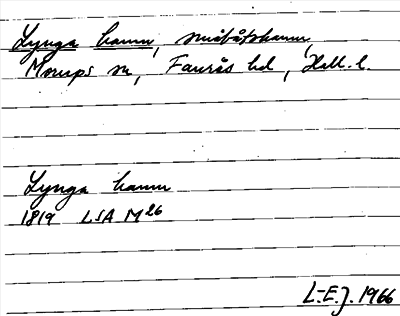 Lynga hamn, småbåtshamn,
Morups sn, Faurås hd, Hall. l.
Lynga hamn
1819 LSA M26
L-E.J. 1966